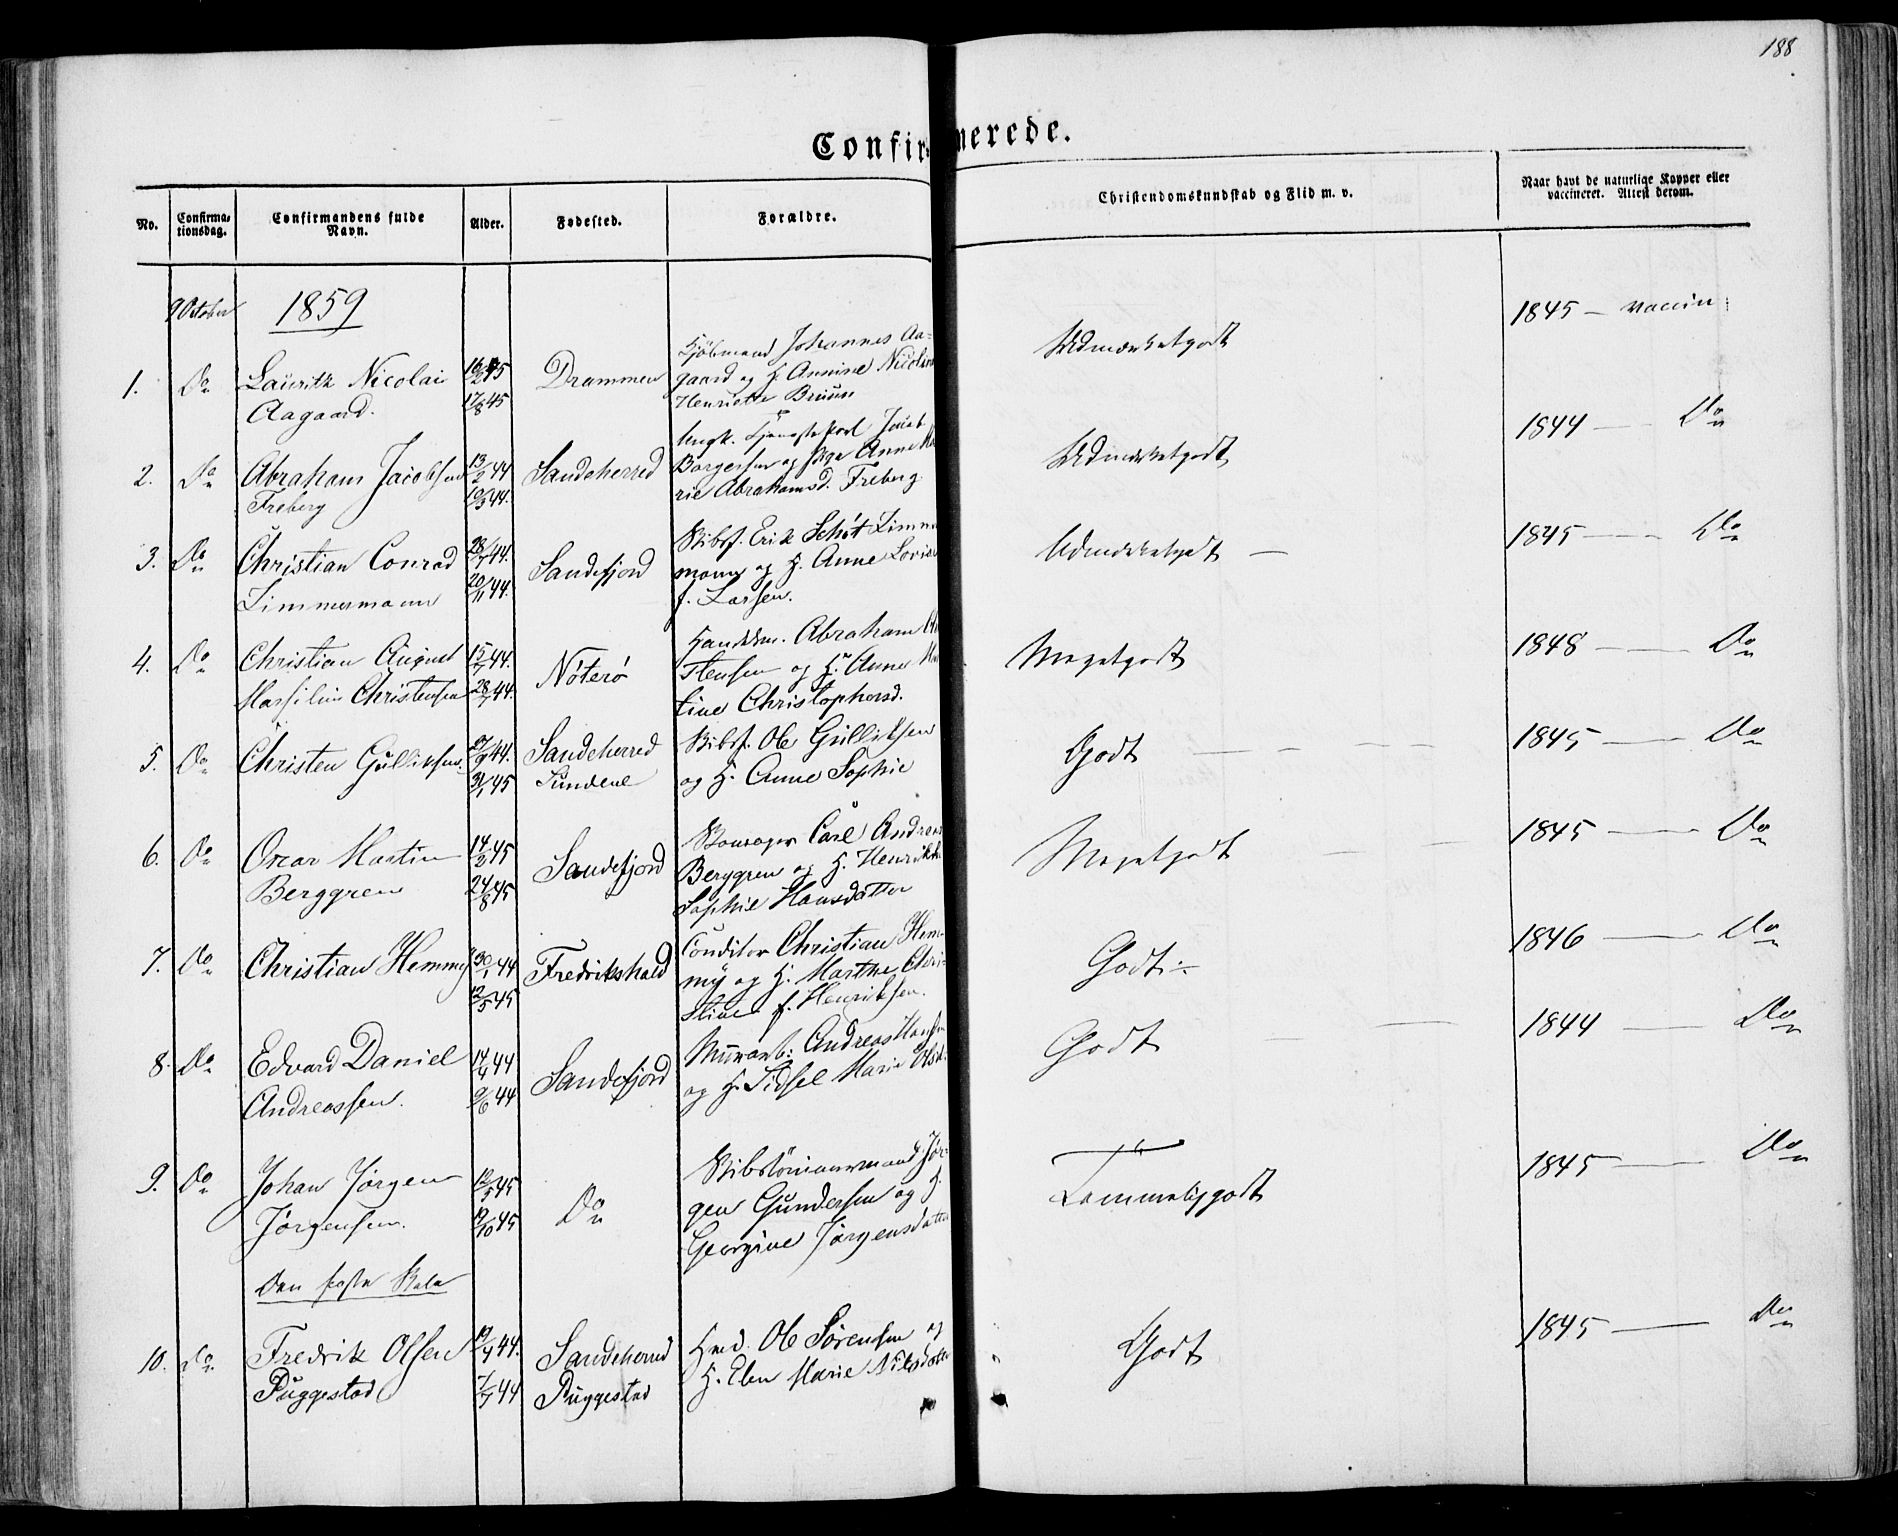 188
Confirmerede.
No. Confirma-tionsdag. Confirmandens fulde Navn. Alder. Fødested. Forældre. Christendomskundskab og Flid m. v. Naar havt de naturlige Kopper eller vaccineret. Attest derom.
9 October 1859
Kjøbmand Johannes Aa-
1. Do Lauritz Nicolai 45 Drammen gaard og H. Annine Nicoline Udmærketgodt 1845 – vaccin:
Aagaard. 17/8 45 Henriette Bruun
Tjenestekarl Jacob
2. Do Abraham Jacobsen 13/2 44 Sandeherred Borgersen og Anne Ma Udmærketgodt 1844 — Do
Freberg 10/3 44. rie Abrahamsd. Freberg
3. Do Christian Conrad 44. Sandefjord Skibsf. Erik Schøt Zimmer Udmærketgodt — 1845 — Do
mann og H. Anne Lovise
Zimmermann 20/11 44. f. Larsen.
4. Do Christian August 44. Nøterø Abraham Meget godt 1848 — Do
Christensen 28/7 44. stensen og H. Anne Mar
tine Christophersd.
5. Do Christen Gulliksen 44. Sandeherred Skibsf. Ole Gulliksen Godt 1845 — Do
31/1 45 Sundene og H. Anne Sophie
6. Do Oscar Martin 45 Sandefjord Carl Andreas Meget godt 1845 — Do
Berggren 24/8 45 Berggren og H. Henrikke
Sophie Hansdatter
7. Do Christian Hemmy 44 Fredrikshald Conditor Christian Hem- Godt 1846 — Do
12/5 45 my og H. Marthe Chri-
stine f. Henriksen.
8. Do Edvard Daniel 14/4 44 Sandefjord Murarb: Andreas Hansen Godt 1844 — Do
Andreassen. 9/6 44 og H. Sidsel Marie Olsd.
9. Do Johan Jørgen 12/5 45 Do Skibstømmermand Jør- Temmelig godt 1845 — Do
Jørgensen. 19/10 45 gen Gundersen og H.
Georgine Jørgensdatter
Den faste Skole
10. Do Fredrik Olsen 19/4 44. Sandeherred Ole Sørensen og Godt 1845 — Do
Puggestad 7/7 44 Puggestad H. Elen Marie Nilsdatter